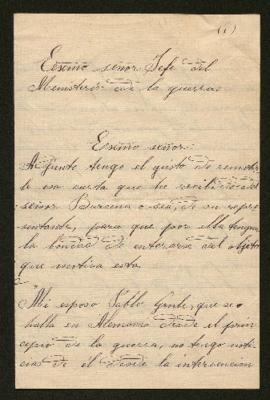 (1)
señor Jefe del
Ministerio de la guerra.
señor:
Adjunto tengo el gusto de remitir
le esa carta que he recibido del
señor Barcena o sea, de su repre
sentante, para que por ella tenga
la bondad de enterarse del objeto
que motiva esta.
Mi esposo Pablo que se
halla en Alemania desde el prin
cipio de la guerra, no tengo noti
cias de el desde la intervencion